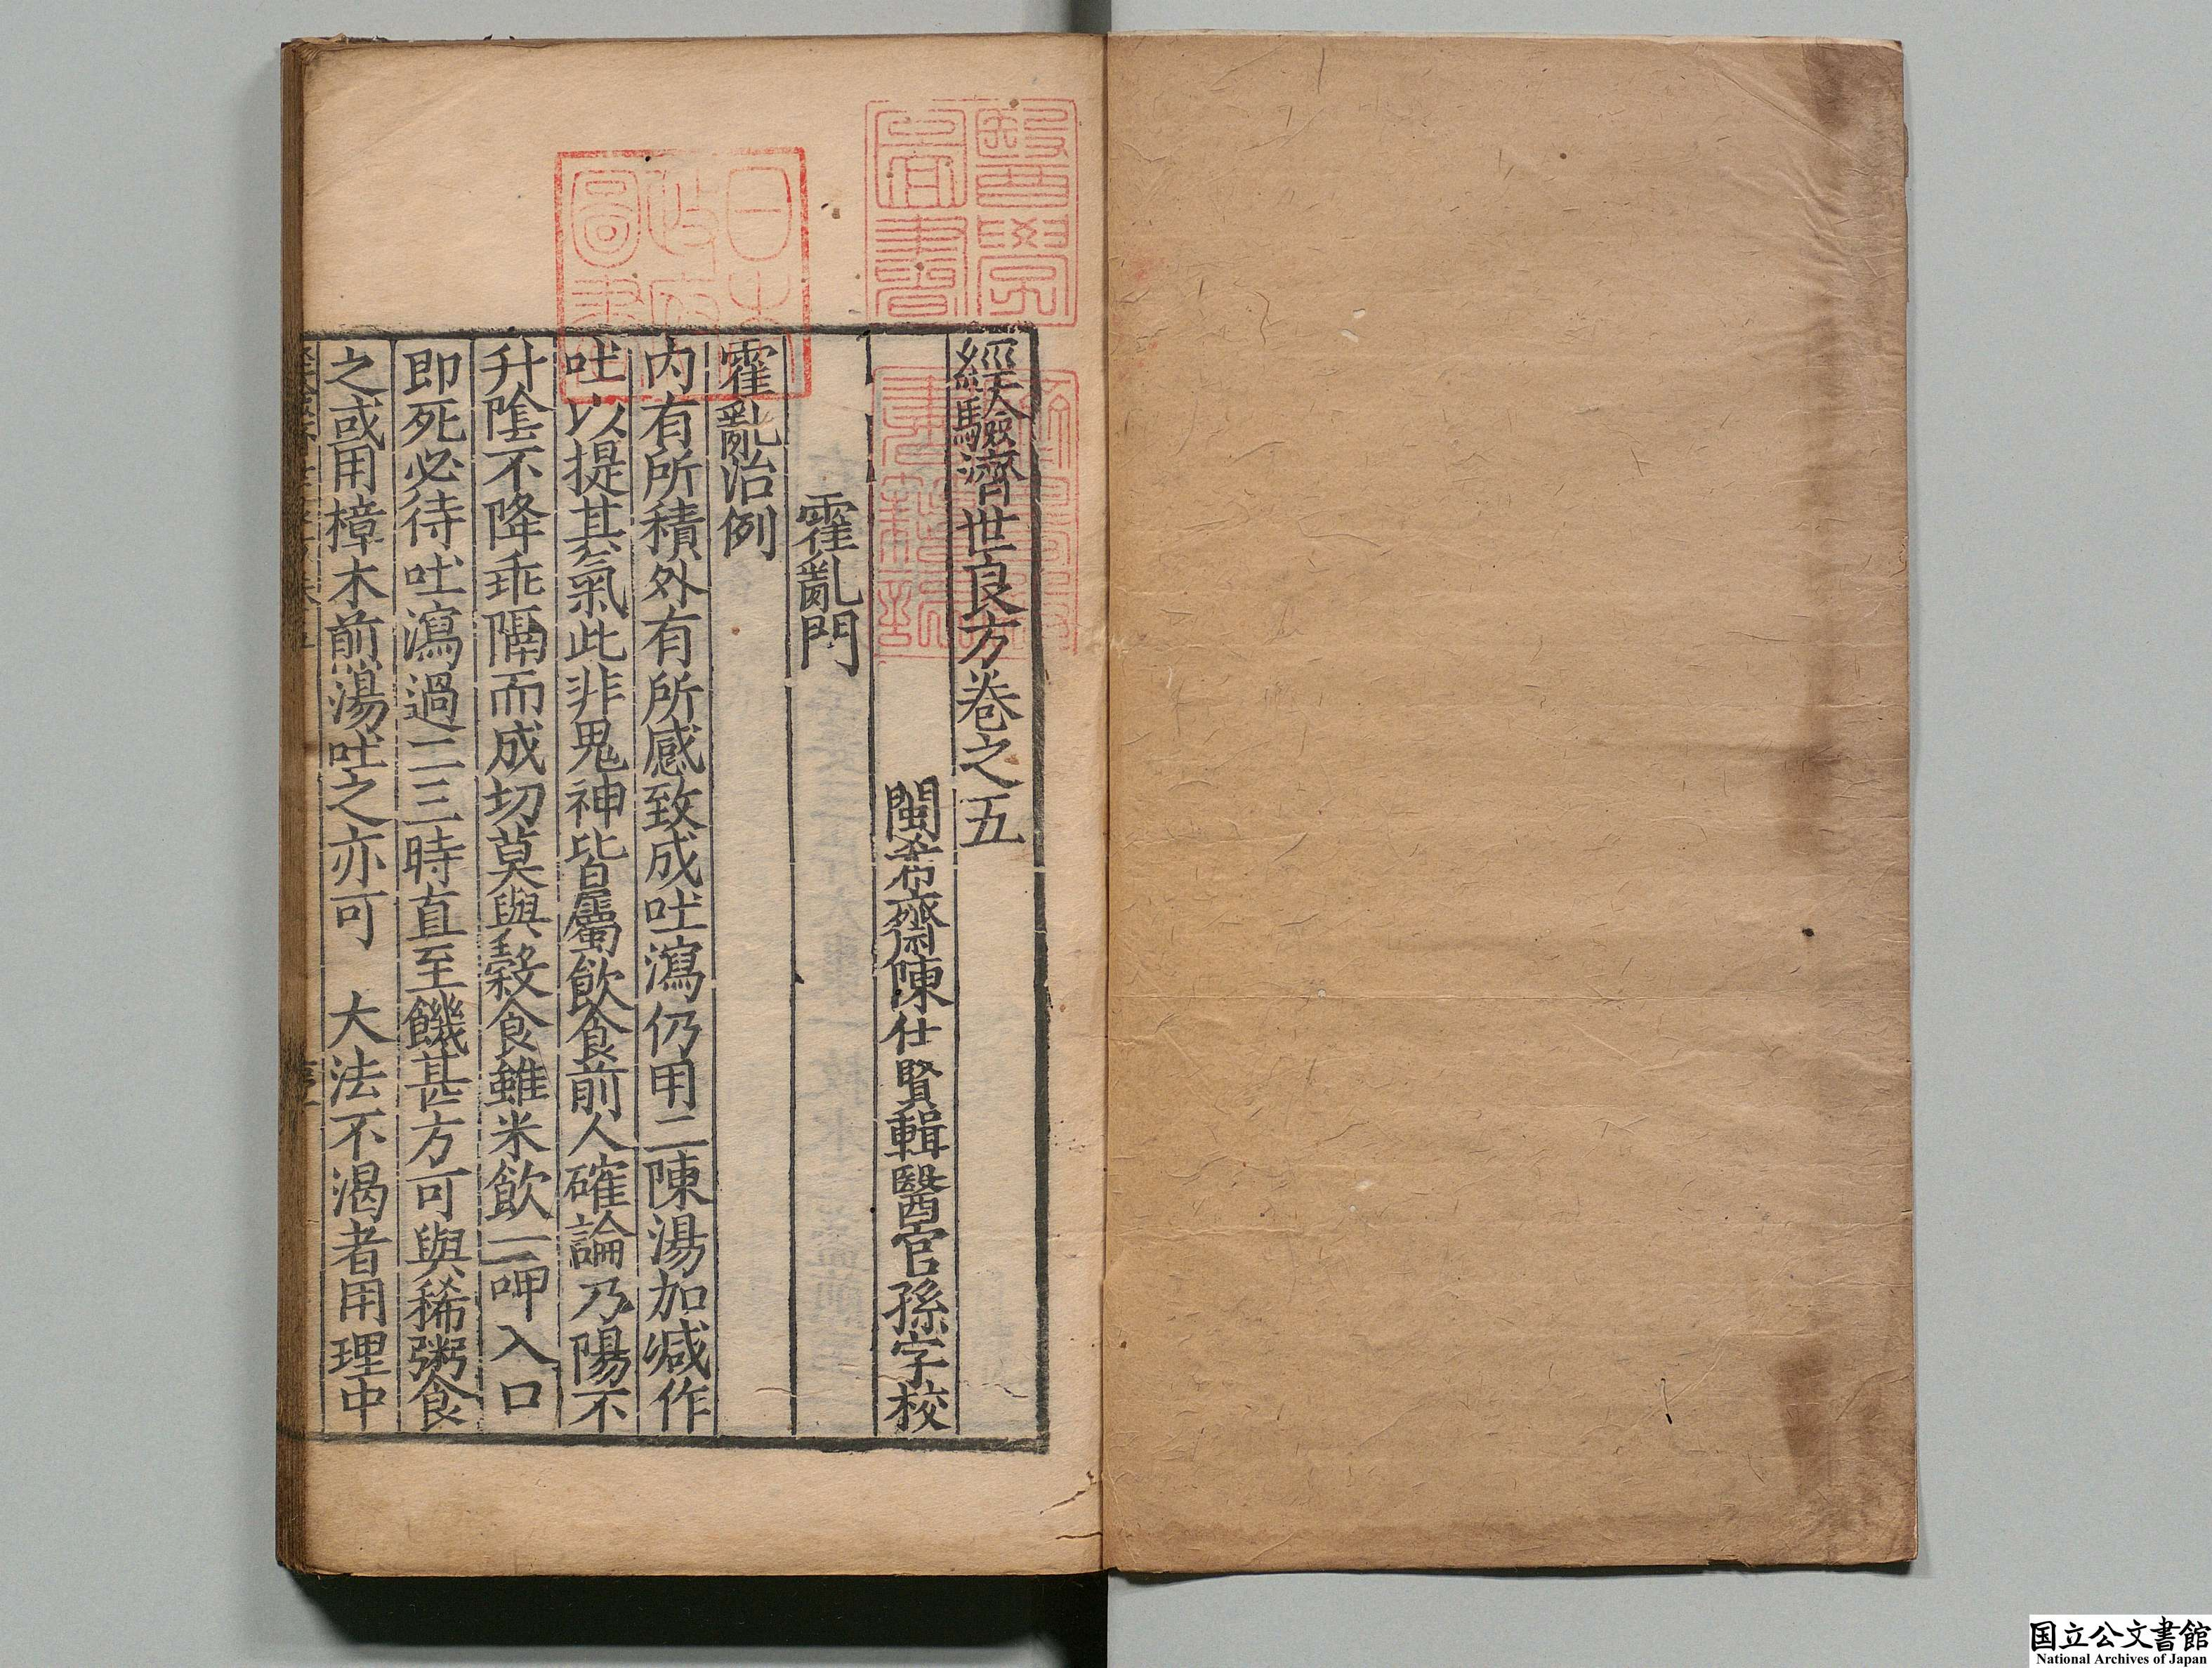 經驗濟世良方卷之五
閩希齋陳仕賢輯醫官孫字校
霍亂門
霍亂治例
内有所積外有所感致成吐瀉仍用二陳湯加減作
吐以提其氣此非鬼神皆屬飲食前人確論乃陽不
升陰不降乖隔而成切莫與穀食雖米飲一呷入口
即死必待吐瀉過二三時直至饑甚方可與稀粥食
之或用樟木煎湯吐之亦可 大法不渴者用理中
醫學圖書
日本政府圖書
国立公文書館
National Archives of Japan